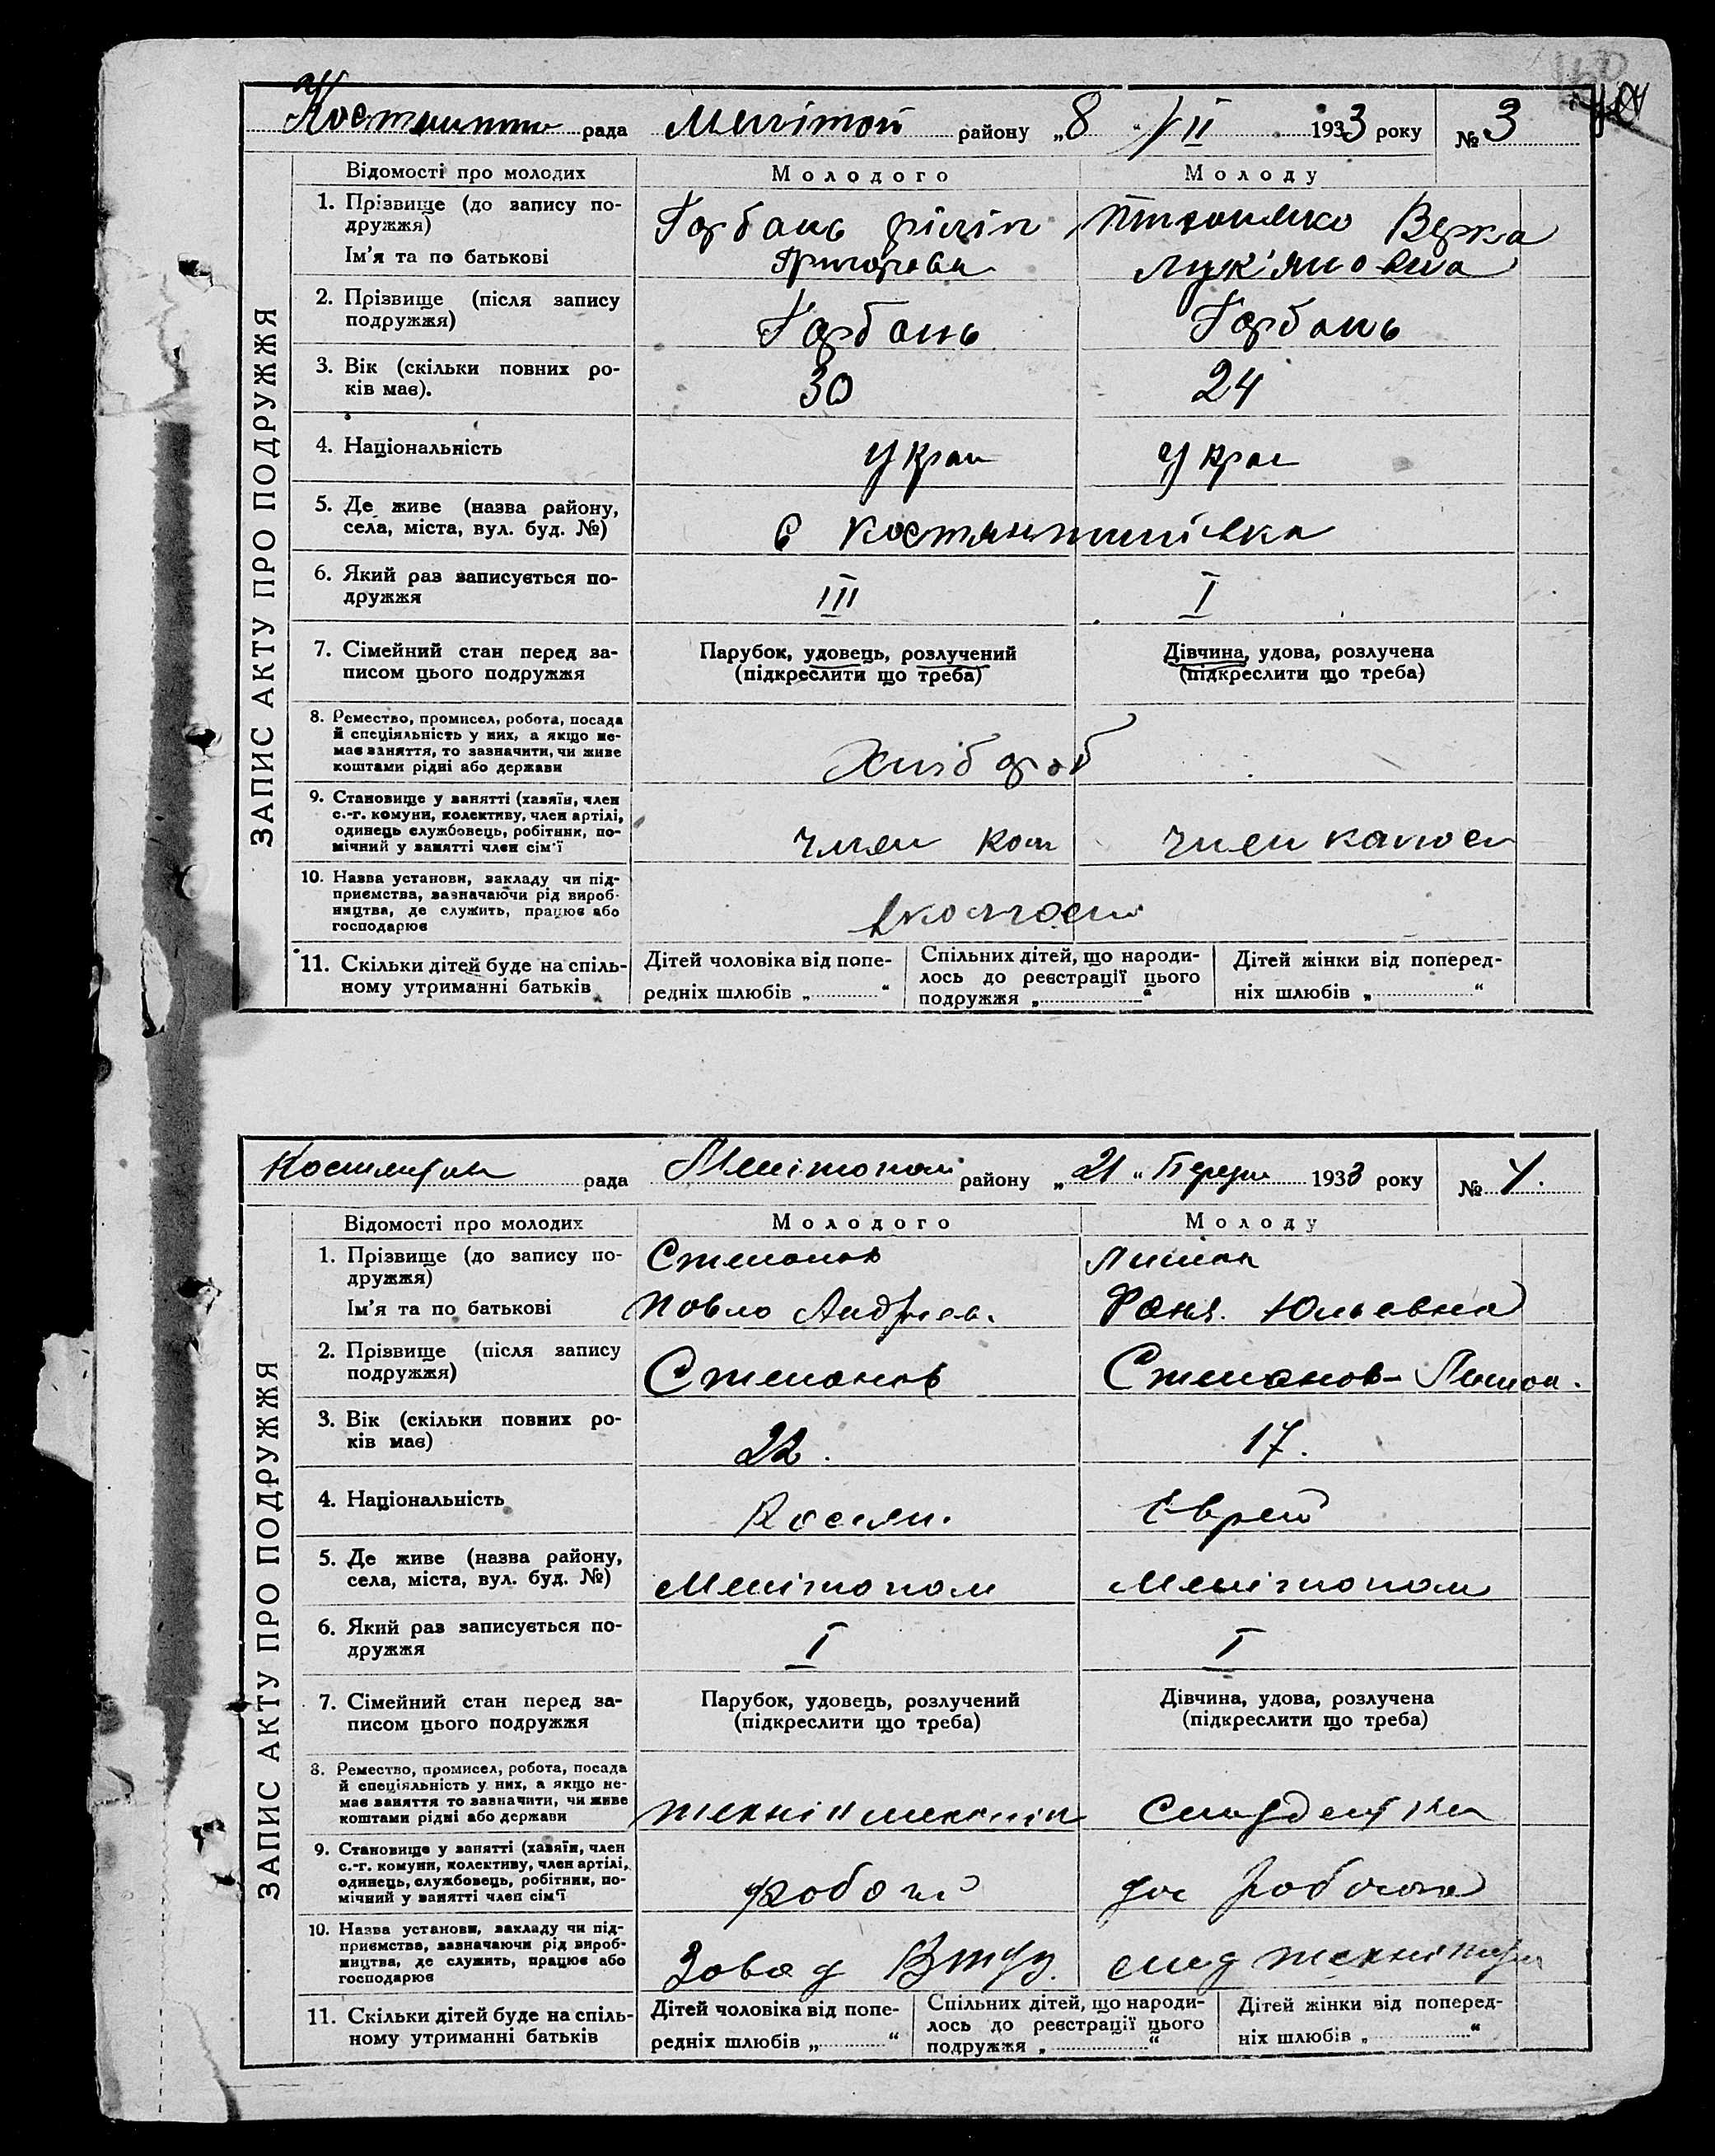 Костянтин рада Мелітоп району „8 “ /II 1933 року № 3
ЗАПИС АКТУ ПРО ПОДРУЖЖЯ
Відомості про молодих Молодого Молоду
1. Прізвище (до запису по-
дружжя) Горбань Філіп Верка
Ім'я та по батькові Григорови Лук'яновна
2. Прізвище (після запису
подружжя) Горбань Горбань
3. Вік (скільки повних ро-
ків має). 30 24
4. Національність Украі Украі
5. Де живе (назва району,
села, міста, вул. буд. №) с Костянтинівка
6. Який раз записується по-
дружжя III I
7. Сімейний стан перед за- Парубок, удовець, розлучений Дівчина, удова, розлучена
писом цього подружжя (підкреслити що треба) (підкреслити що треба)
8. Ремество, промисел, робота, посада
й спеціяльність у них, а якщо не-
має заняття, то зазначити, чи живе
коштами рідні або держави Хліброб
9. Становище у занятті (хазяїн, член
с.-г. комуни, колективу, член артілі,
одинець службовець, робітник, по-
мічний у занятті член сім'ї член кол член колгос
10. Назва установи, закладу чи під-
приємства, зазначаючи рід вироб-
ництва, де служить, працює або
господарює вколгосп
11. Скільки дітей буде на спіль- Дітей чоловіка від попе- Спільних дітей, що народи- Дітей жінки від поперед-
ному утриманні батьків редніх шлюбів „ “ лось до реєстрації цього ніх шлюбів „ “
подружжя „ “
рада Мелітопол району „21 “ 1933 року № 4.
ЗАПИС АКТУ ПРО ПОДРУЖЖЯ
Відомості про молодих Молодого Молоду
1. Прізвище (до запису по- Степанов
дружжя)
Ім'я та по батькові Павло Андрієв. Фаня. Юльевна
2. Прізвище (після запису
подружжя) Степанов Степанов-
3. Вік (скільки повних ро-
ків має) 22. 17.
4. Національність Россіян. Еврей
5. Де живе (назва району,
села, міста, вул. буд. №) Мелітопол Мелітопол
6. Який раз записується по-
дружжя I I
7. Сімейний стан перед за- Парубок, удовець, розлучений Дівчина, удова, розлучена
писом цього подружжя (підкреслити що треба) (підкреслити що треба)
8. Ремество, промисел, робота, посада
й спеціяльність у них, а якщо не-
має заняття то зазначити, чи живе
коштами рідні або держави технік механік Студентка
9. Становище у занятті (хазяїн, член
с.-г. комуни, колективу, член артілі,
одинець, службовець, робітник, по-
мічний у занятті член сім'ї робочі
10. Назва установи, закладу чи під-
приємства, зазначаючи рід вироб-
ництва, де служить, працює або
господарює Завод
11. Скільки дітей буде на спіль- Дітей чоловіка від попе- Спільних дітей, що народи- Дітей жінки від поперед-
ному утриманні батьків редніх шлюбів „ “ лось до реєстрації цього ніх шлюбів „ “
подружжя „ “